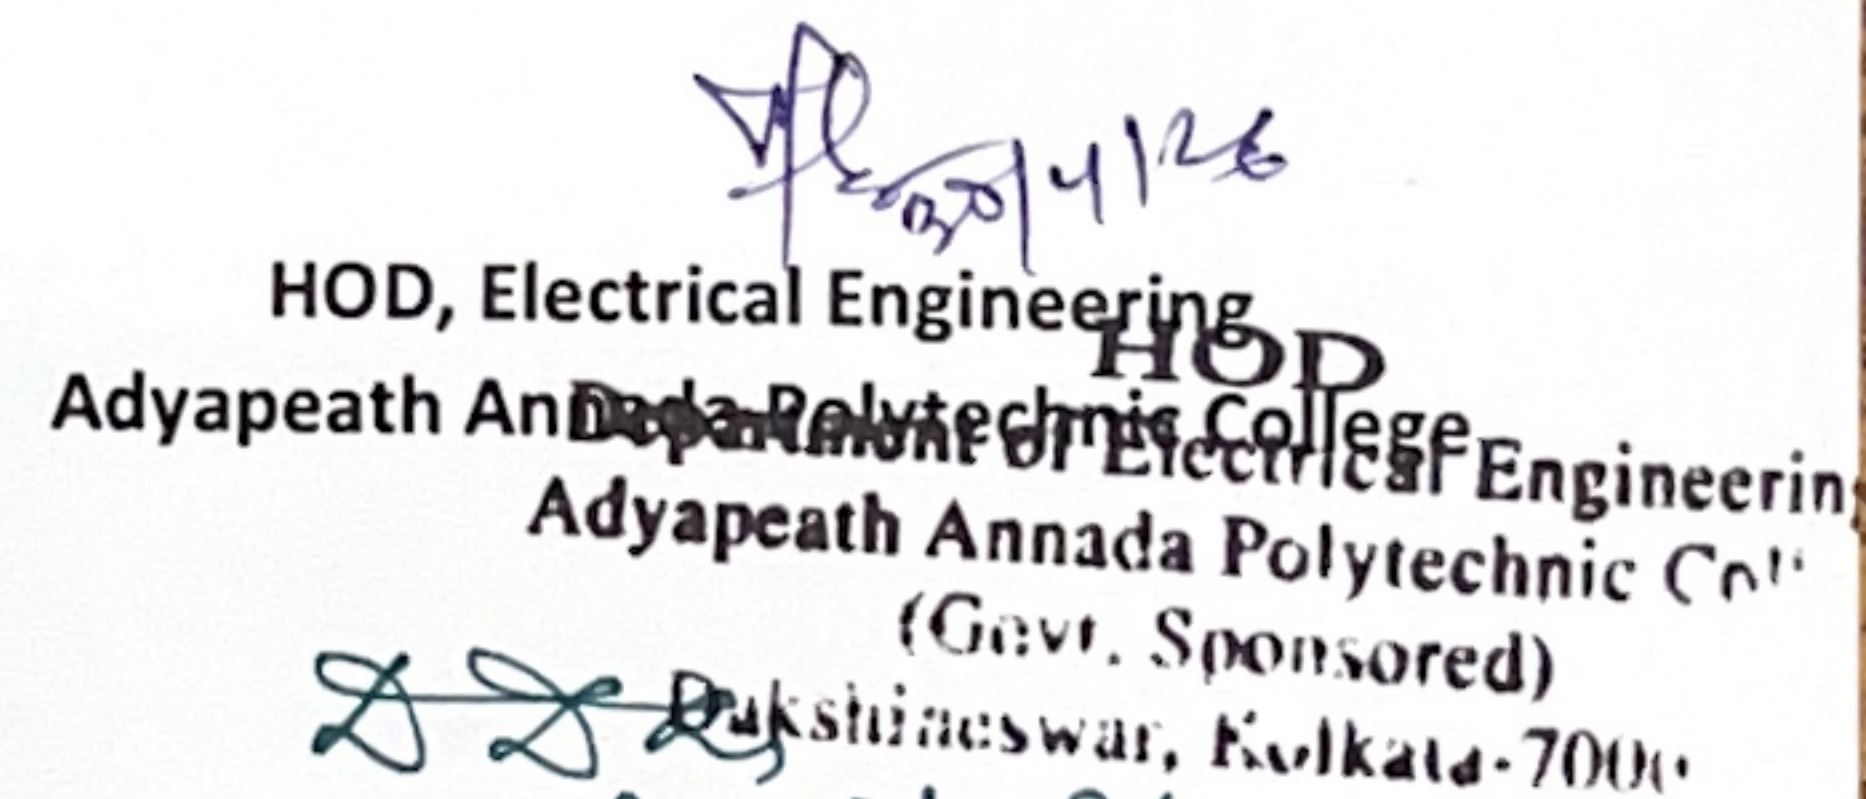 30/4/26
HOD, Electrical Engineering
HOD
Adyapeath Annada Polytechnic College
Department of Electrical Engineerin
Adyapeath Annada Polytechnic
(Govt. Sponsored)
Dakshineswar, Kolkata-700